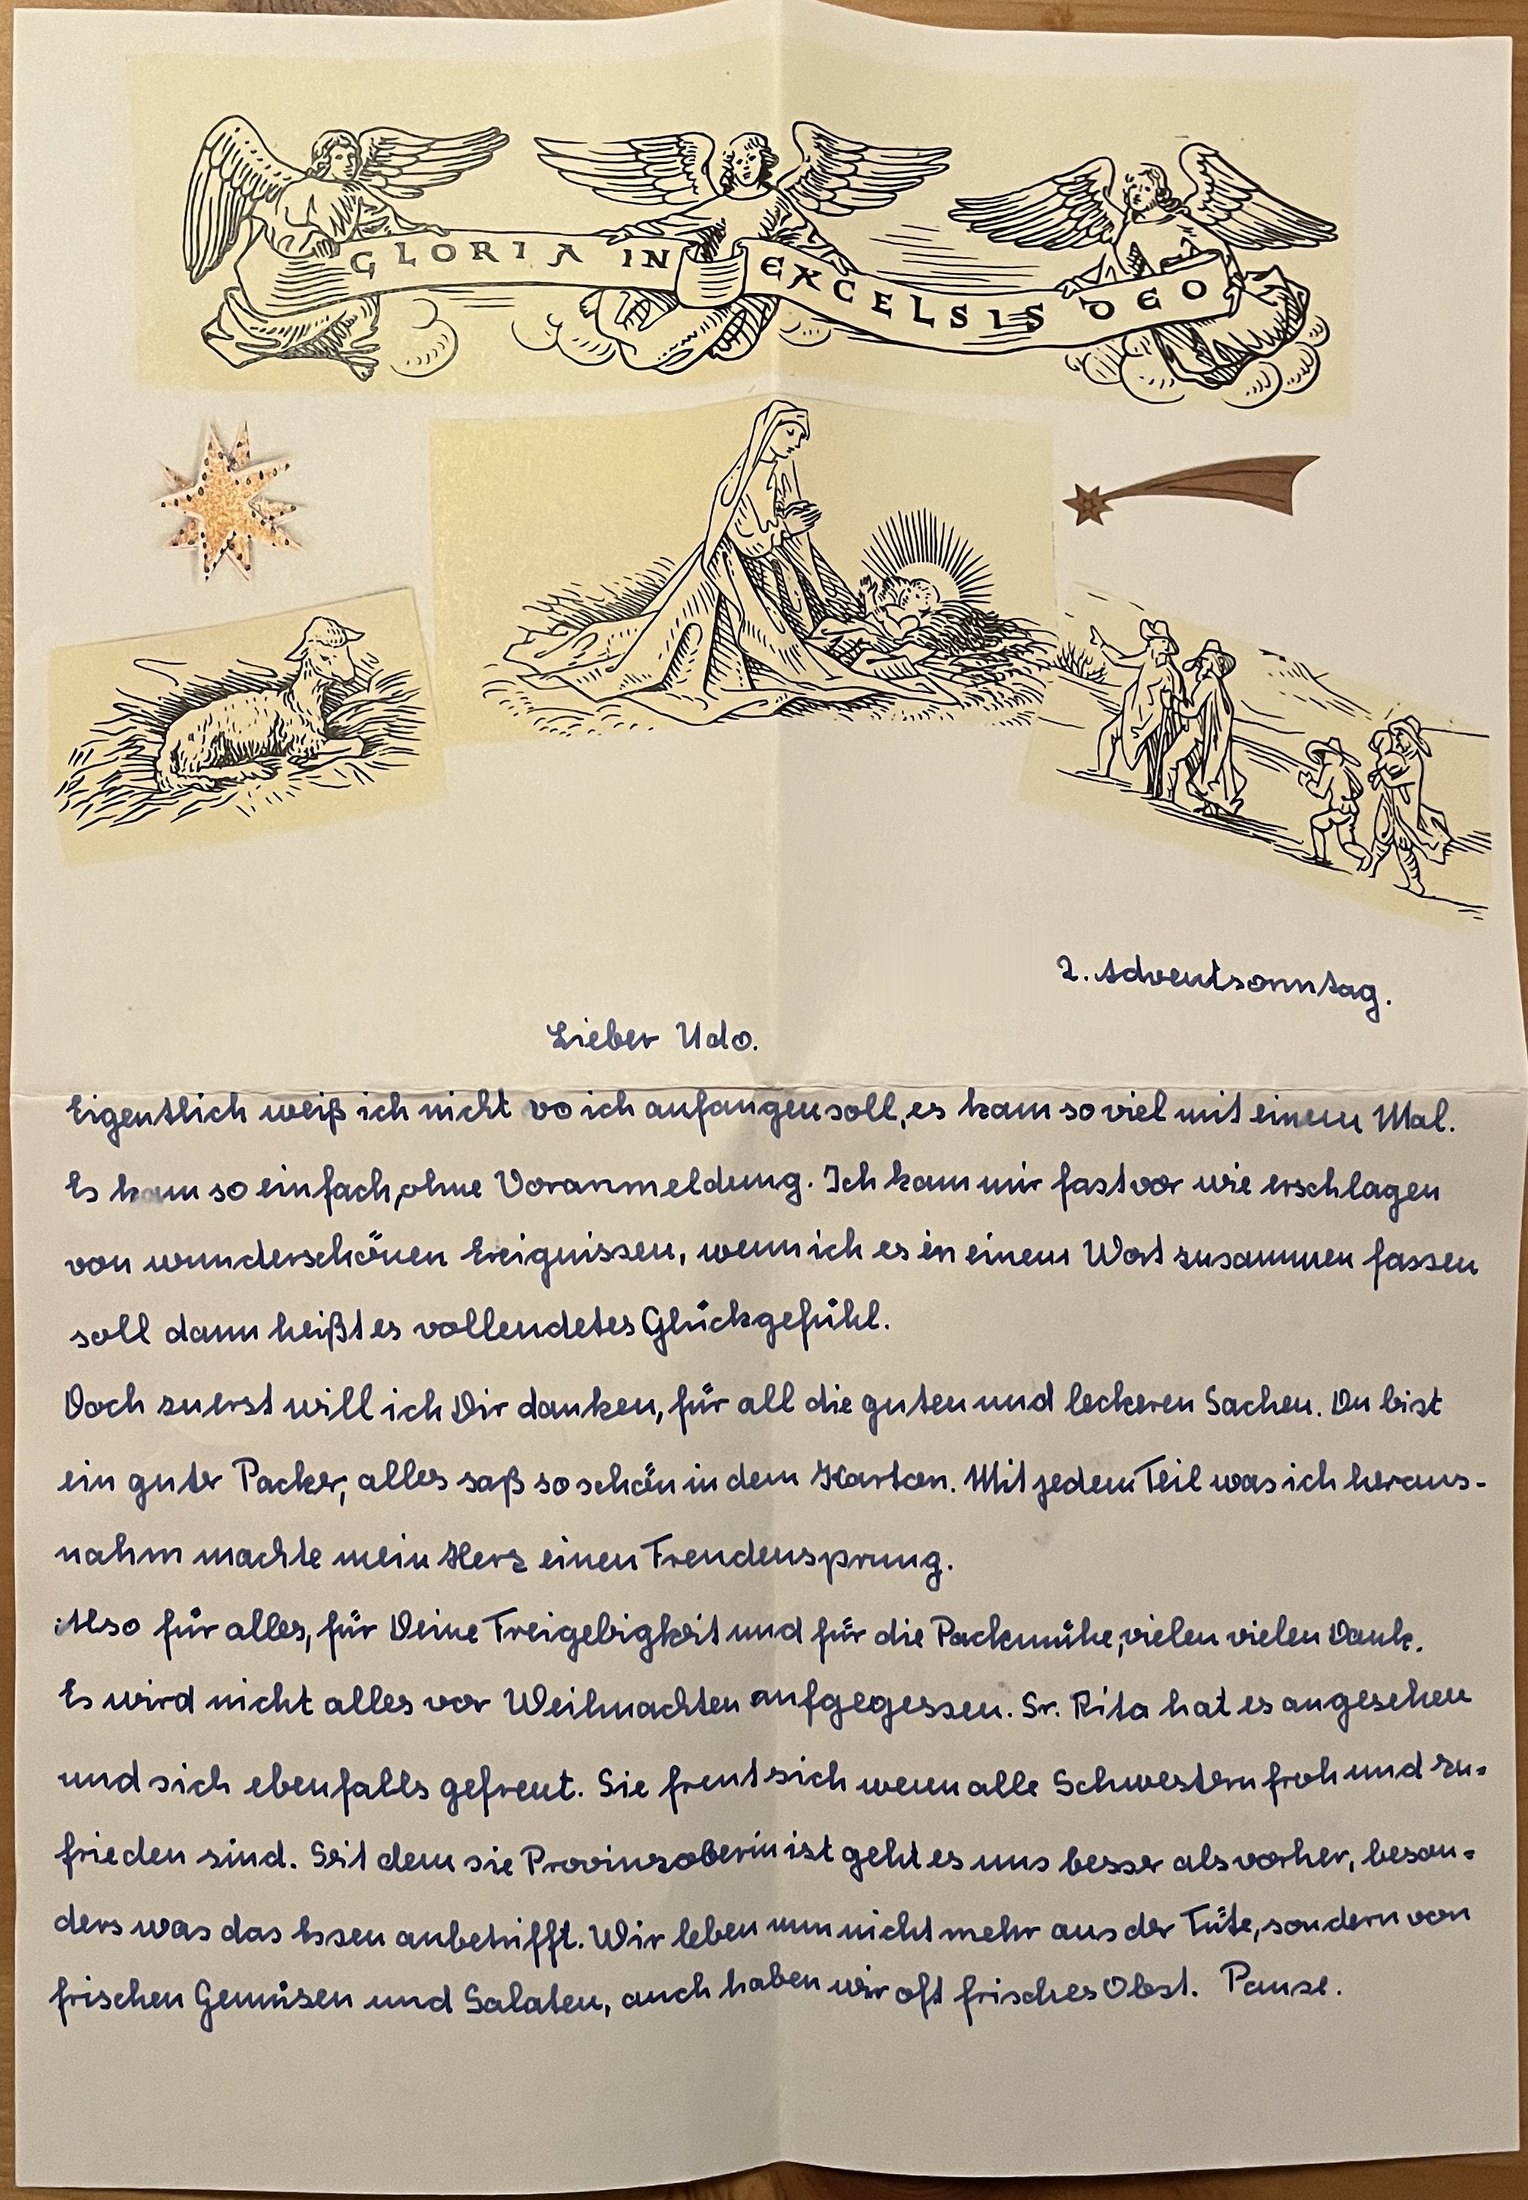 GLORIA IN EXCELSIS DEO
2. Adventsonntag.
Lieber Udo.
Eigentlich weiß ich nicht vo ich anfangen soll, es kam so viel mit einem Mal.
Es kam so einfach, ohne Voranmeldung. Ich kam mir fast vor wie erschlagen
von wunderschönen Ereignissen, wenn ich es in einem Wort zusammen fassen
soll dann heißt es vollendetes Glückgefühl.
Doch zuerst will ich Dir danken, für all die guten und leckeren Sachen. Du bist
ein guter Packer, alles saß so schön in dem Karton. Mit jedem Teil was ich heraus-
nahm machte mein Herz einen Freudensprung.
Also für alles, für Deine Freigebigkeit und für die Packmühe, vielen vielen Dank.
Es wird nicht alles vor Weihnachten aufgegessen. Sr. Rita hat es angesehen
und sich ebenfalls gefreut. Sie freut sich wenn alle Schwestern froh und zu-
frieden sind. Seit dem sie Provinzoberin ist geht es uns besser als vorher, beson-
ders was das Essen anbetrifft. Wir leben nun nicht mehr aus der Tüte, sondern von
frischen Gemüsen und Salaten, auch haben wir oft frisches Obst. Pause.